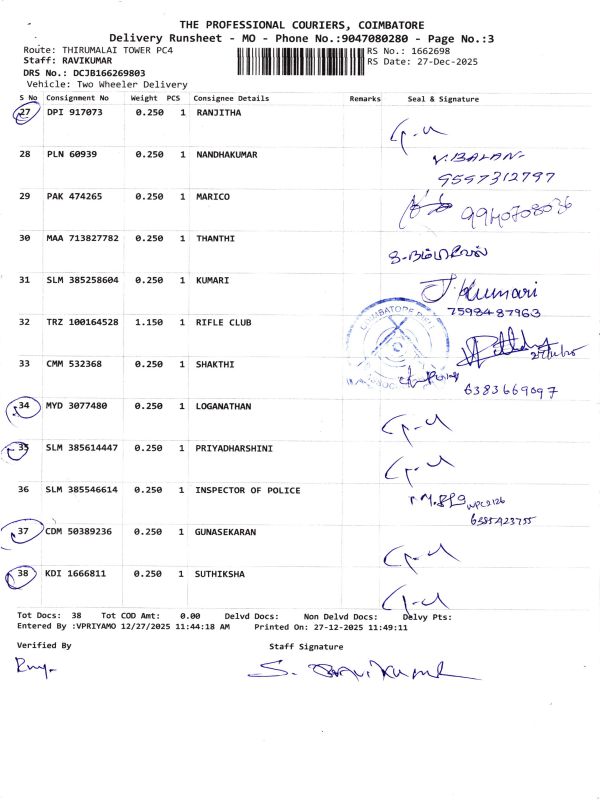 THE PROFESSIONAL COURIERS, COIMBATORE
Delivery Runsheet - MO - Phone No.:9047080280 - Page No.:3
Route: THIRUMALAI TOWER PC4 RS No.: 1662698
Staff: RAVIKUMAR RS Date: 27-Dec-2025
DRS No.: DCJB166269803
Vehicle: Two Wheeler Delivery
S No Consignment No Weight PCS Consignee Details Remarks Seal & Signature
27 DPI 917073 0.250 1 RANJITHA
28 PLN 60939 0.250 1 NANDHAKUMAR V.BALAN
9597312797
29 PAK 474265 0.250 1 MARICO 9940708036
30 MAA 713827782 0.250 1 THANTHI
31 SLM 385258604 0.250 1 KUMARI J. Kumari
7598487963
32 TRZ 100164528 1.150 1 RIFLE CLUB
33 CMM 532368 0.250 1 SHAKTHI
6383669097
34 MYD 3077480 0.250 1 LOGANATHAN
35 SLM 385614447 0.250 1 PRIYADHARSHINI
36 SLM 385546614 0.250 1 INSPECTOR OF POLICE
6385423755
37 CDM 50389236 0.250 1 GUNASEKARAN
38 KDI 1666811 0.250 1 SUTHIKSHA
Tot Docs: 38 Tot COD Amt: 0.00 Delvd Docs: Non Delvd Docs: Delvy Pts:
Entered By :VPRIYAMO 12/27/2025 11:44:18 AM Printed On: 27-12-2025 11:49:11
Verified By Staff Signature
S. Ravikumar